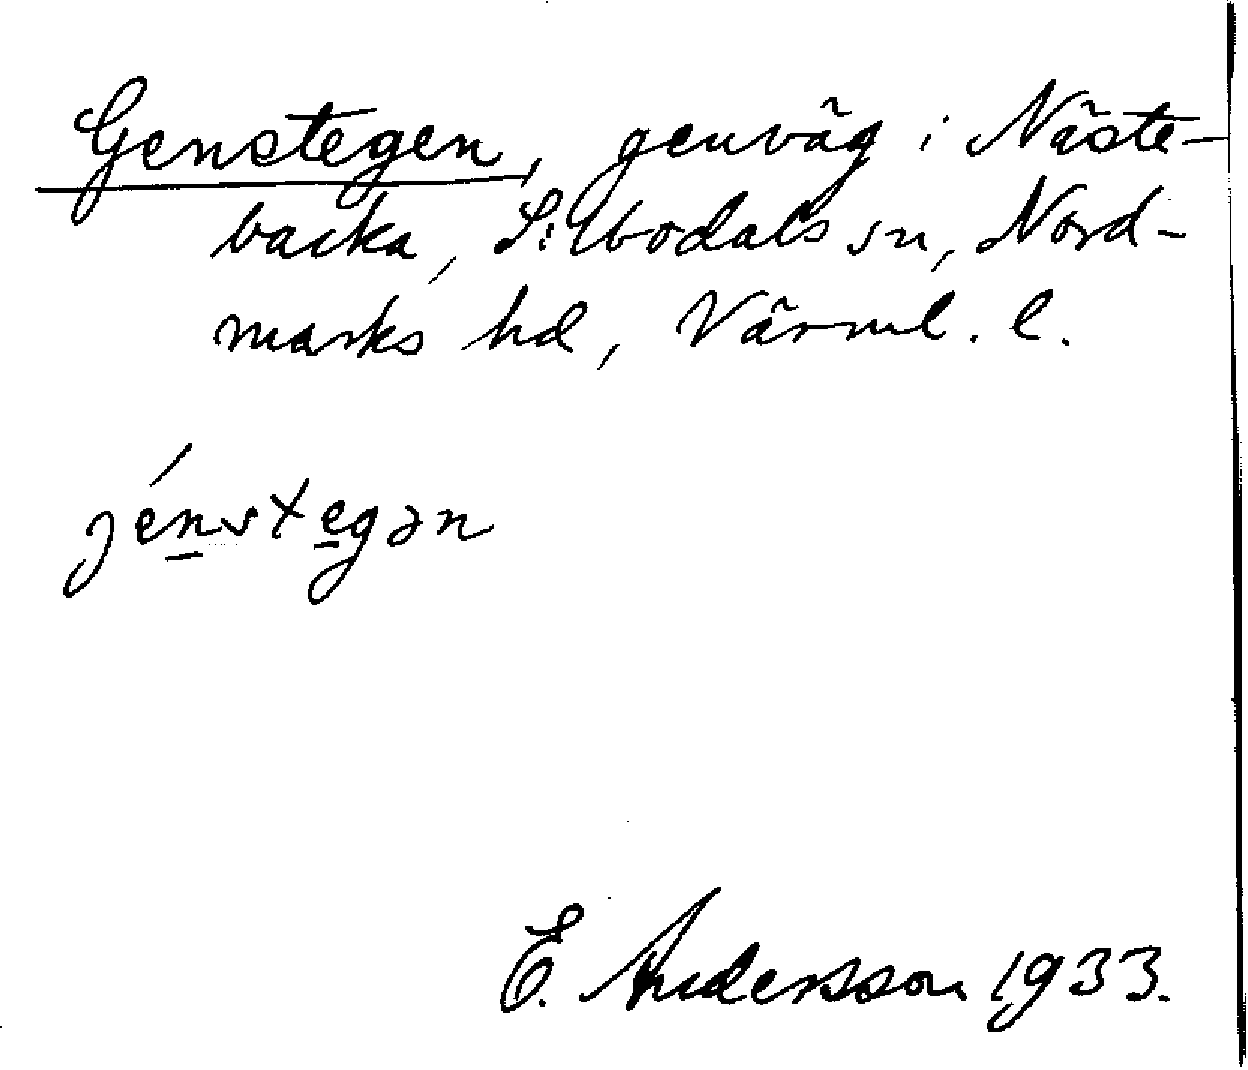 Genstegen, genväg i Näste-
backa, Silbodals sn, Nord-
marks hd, Värml. l.
jénstegən
E. Andersson 1933.